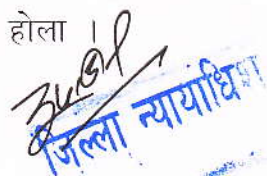 होला ।
जिल्ला न्यायाधिश